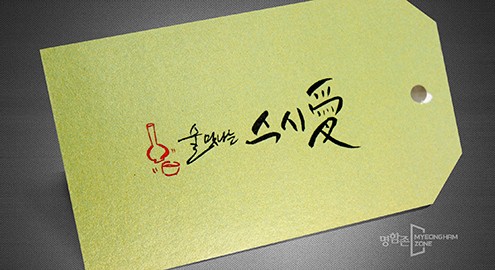 술맛나는 스시愛
명함존 MYEONGHAM
ZONE